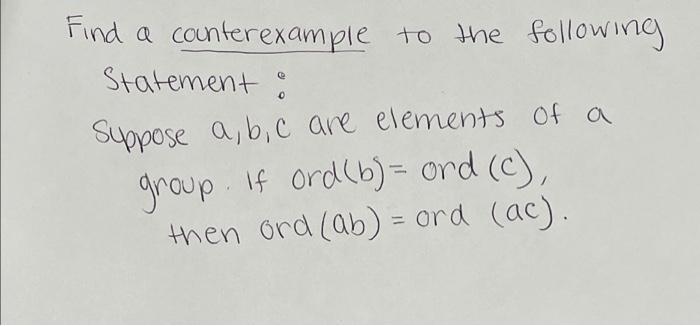 Find a counterexample to the following
Statement :
Suppose a,b,c are elements of a
group. If ord(b) = ord (c),
then ord (ab) = ord (ac).